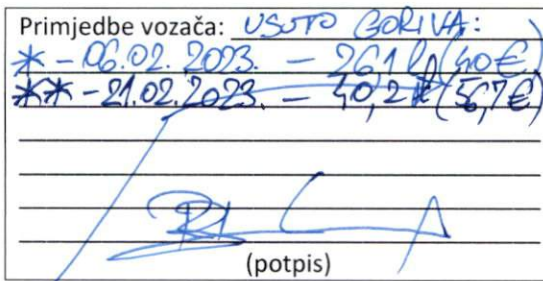 Primjedbe vozača: USUTO GORIVA:
* - 06.02.2023. - 26,1 l (40€)
** - 21.02.2023. - 40,2 l (56,7€)
(potpis)